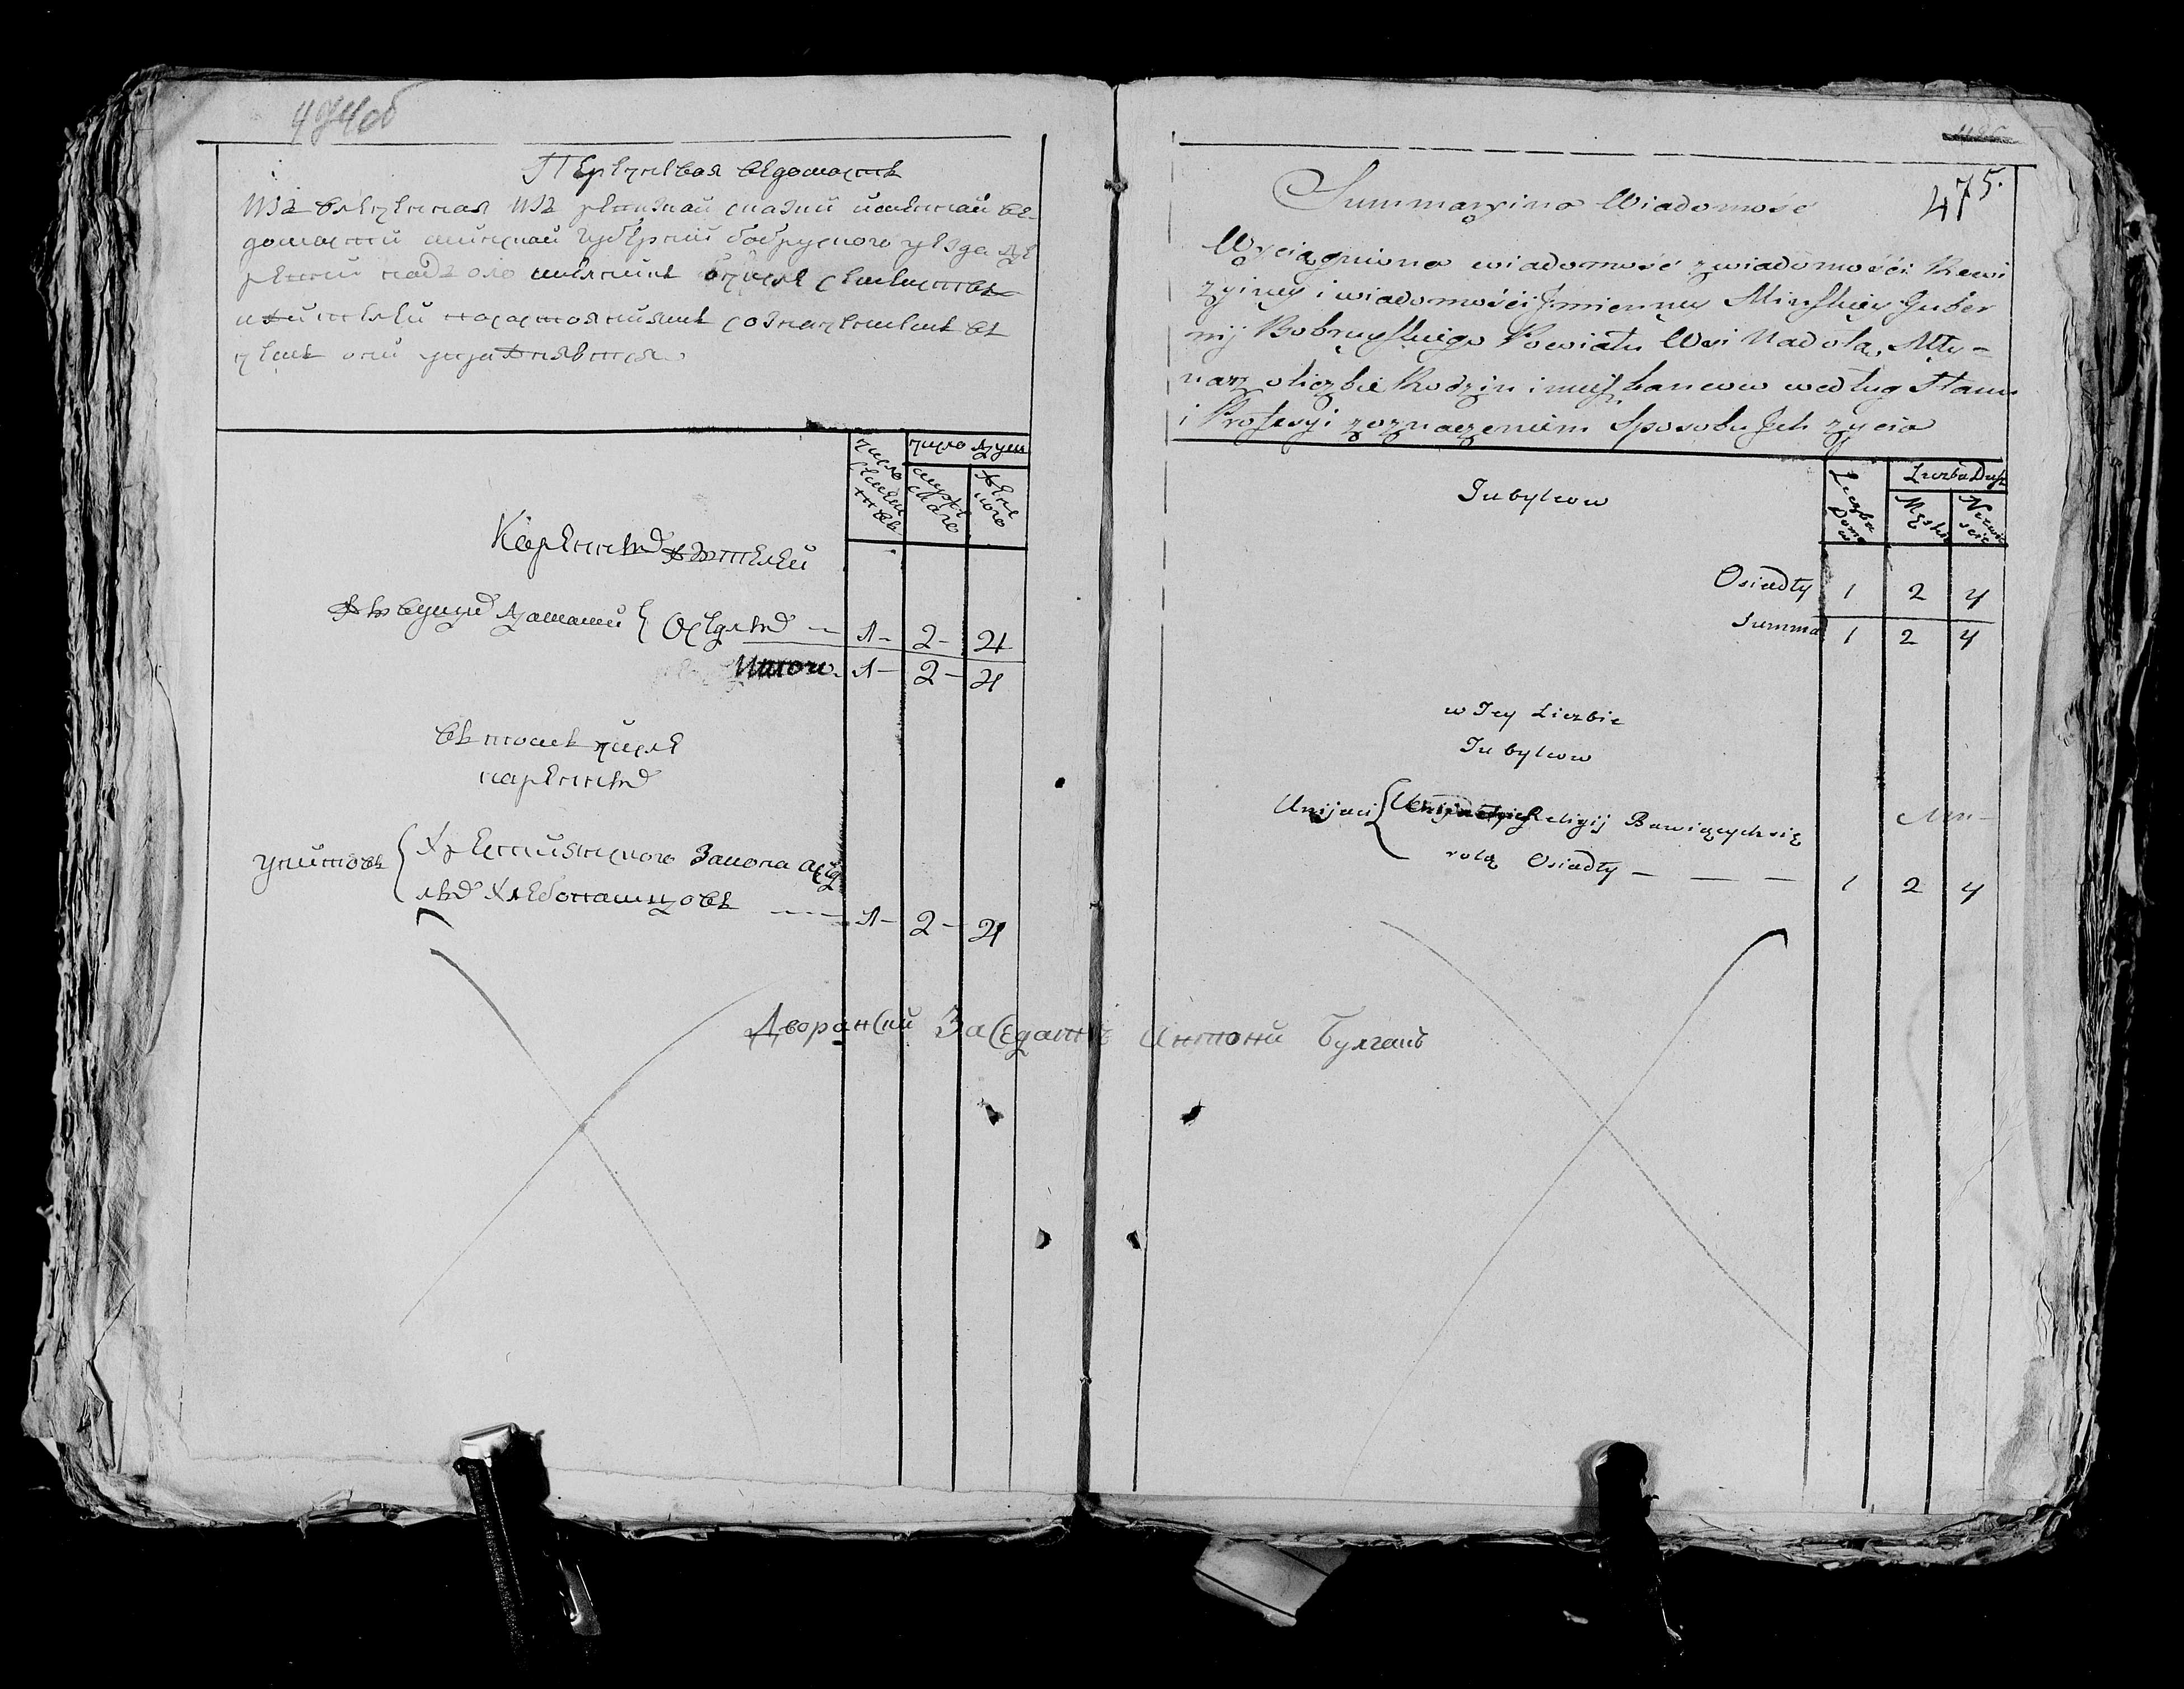 474об
Перечневая ведомость
изъ влеченная изъ ревизкай сказки именнай ве
домасти минскай губернии бобруского уезда де
ревни надъ оло числе семействъ
жителей по состояниямъ со значениемъ въ
чемъ они упражняются
число семейств
число душ
мужескаго
женского
Кареннѣ жителей
живущи домами { Оседлы — 1 - 2 - 4
Итого. 1 - 2 - 4
въ томъ числе
каренны
унитовъ { Християнского Закона осед
лы хлебопашцовъ — 1 - 2 - 4
Дворянский Заседатель Антони Булгакъ
475.
Summaryina Wiadomość
Wyciągniona wiadomość z wiadomości Rewi
zyiney i wiadomości Jmienney Minskiey Guber
nij Bobruyskiego Powiatu Wsi Nadola, Mły-
narz o liczbie Rodzin i mieszkancow według Stanu
i Profesyi z oznaczeniem Sposobu Jch zycia
Liczba Domow
Liczba Dusz
Męskie
Niewiescie
Tubylcow
Osiadły 1 2 4
Summa 1 2 4
w Tey Liczbie
Tubylcow
Unijaci { Religij Bawiących się
rolą Osiadły — — — 1 2 4